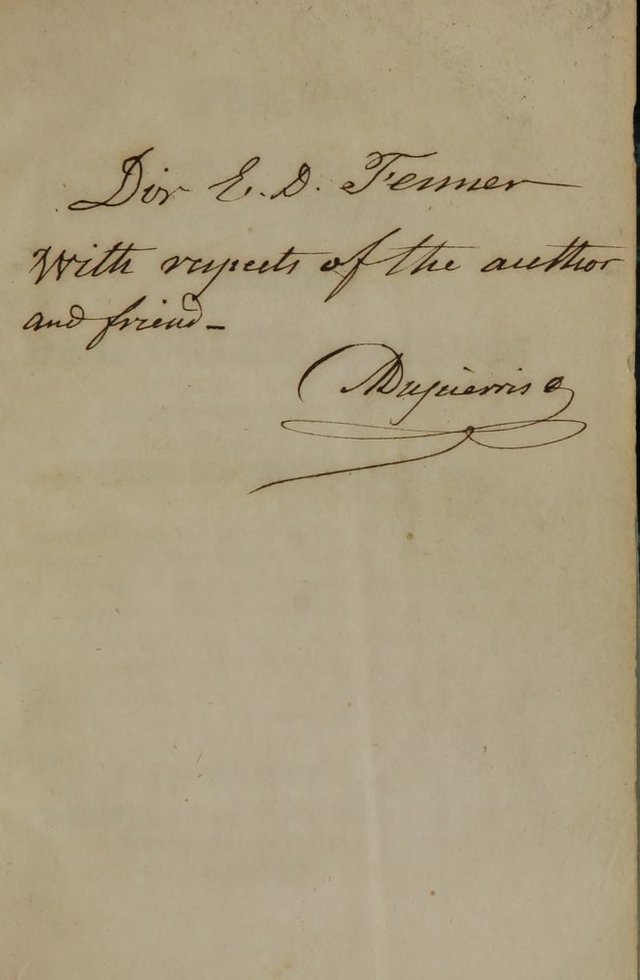 Dör E. D. Fenner
With respects of the author
and friend_